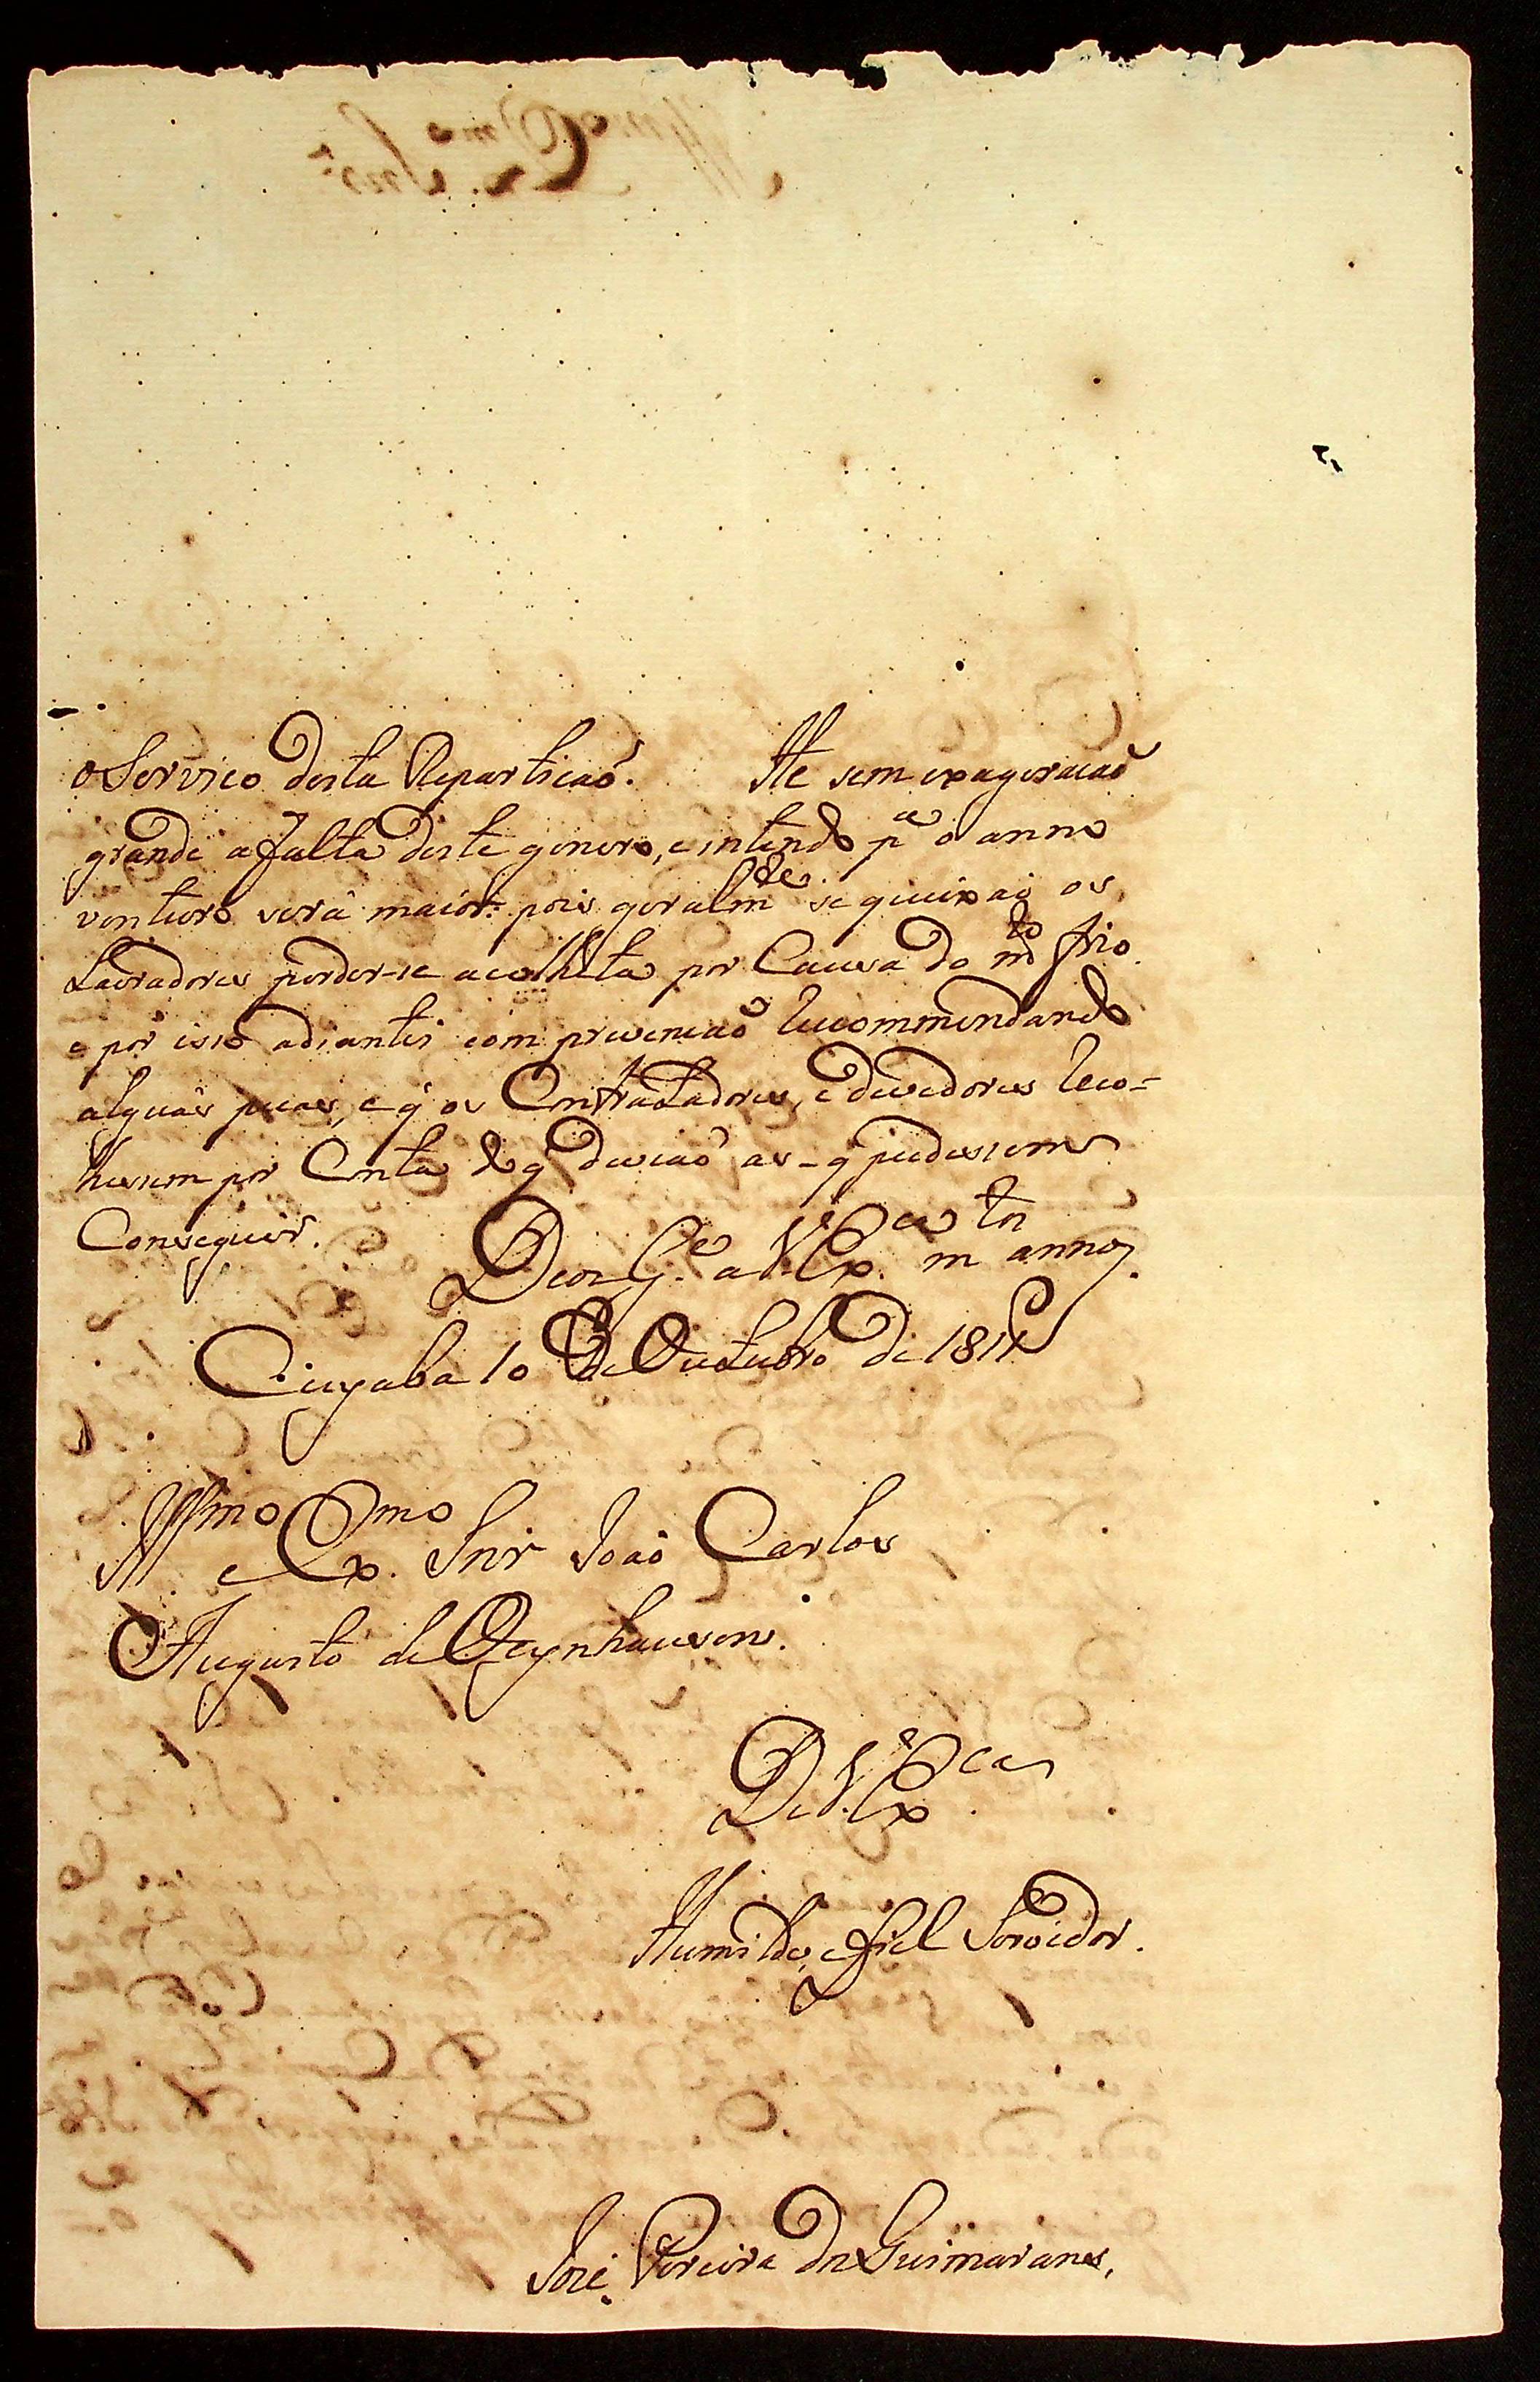 o Servico desta Reparticaõ. He sem exageracaõ
grande a falta deste genero, e intendo p.ª o anno
venturo será maior: pois geralm.te se queixaõ os
Lavradores perder-se a colheita por Cauza do m.to frio.
e por isso adiantei com prevencaõ recommendando
alguãs pecas, e q' os Contratadores, e devedores reco-
hessem por Conta do q' deviaõ as - q' pudessem
Conseguir. Deos G.e a V. Ex.ca m.tos annos.
Cuyaba 10 de Outubro de 181
Ill.mo e Ex.mo Snr Joaõ Carlos
Augusto de Oeynhausen.
De V. Ex.ca
Humilde, e fiel Servidor.
Jozé Pereira dos Guimaraẽs,